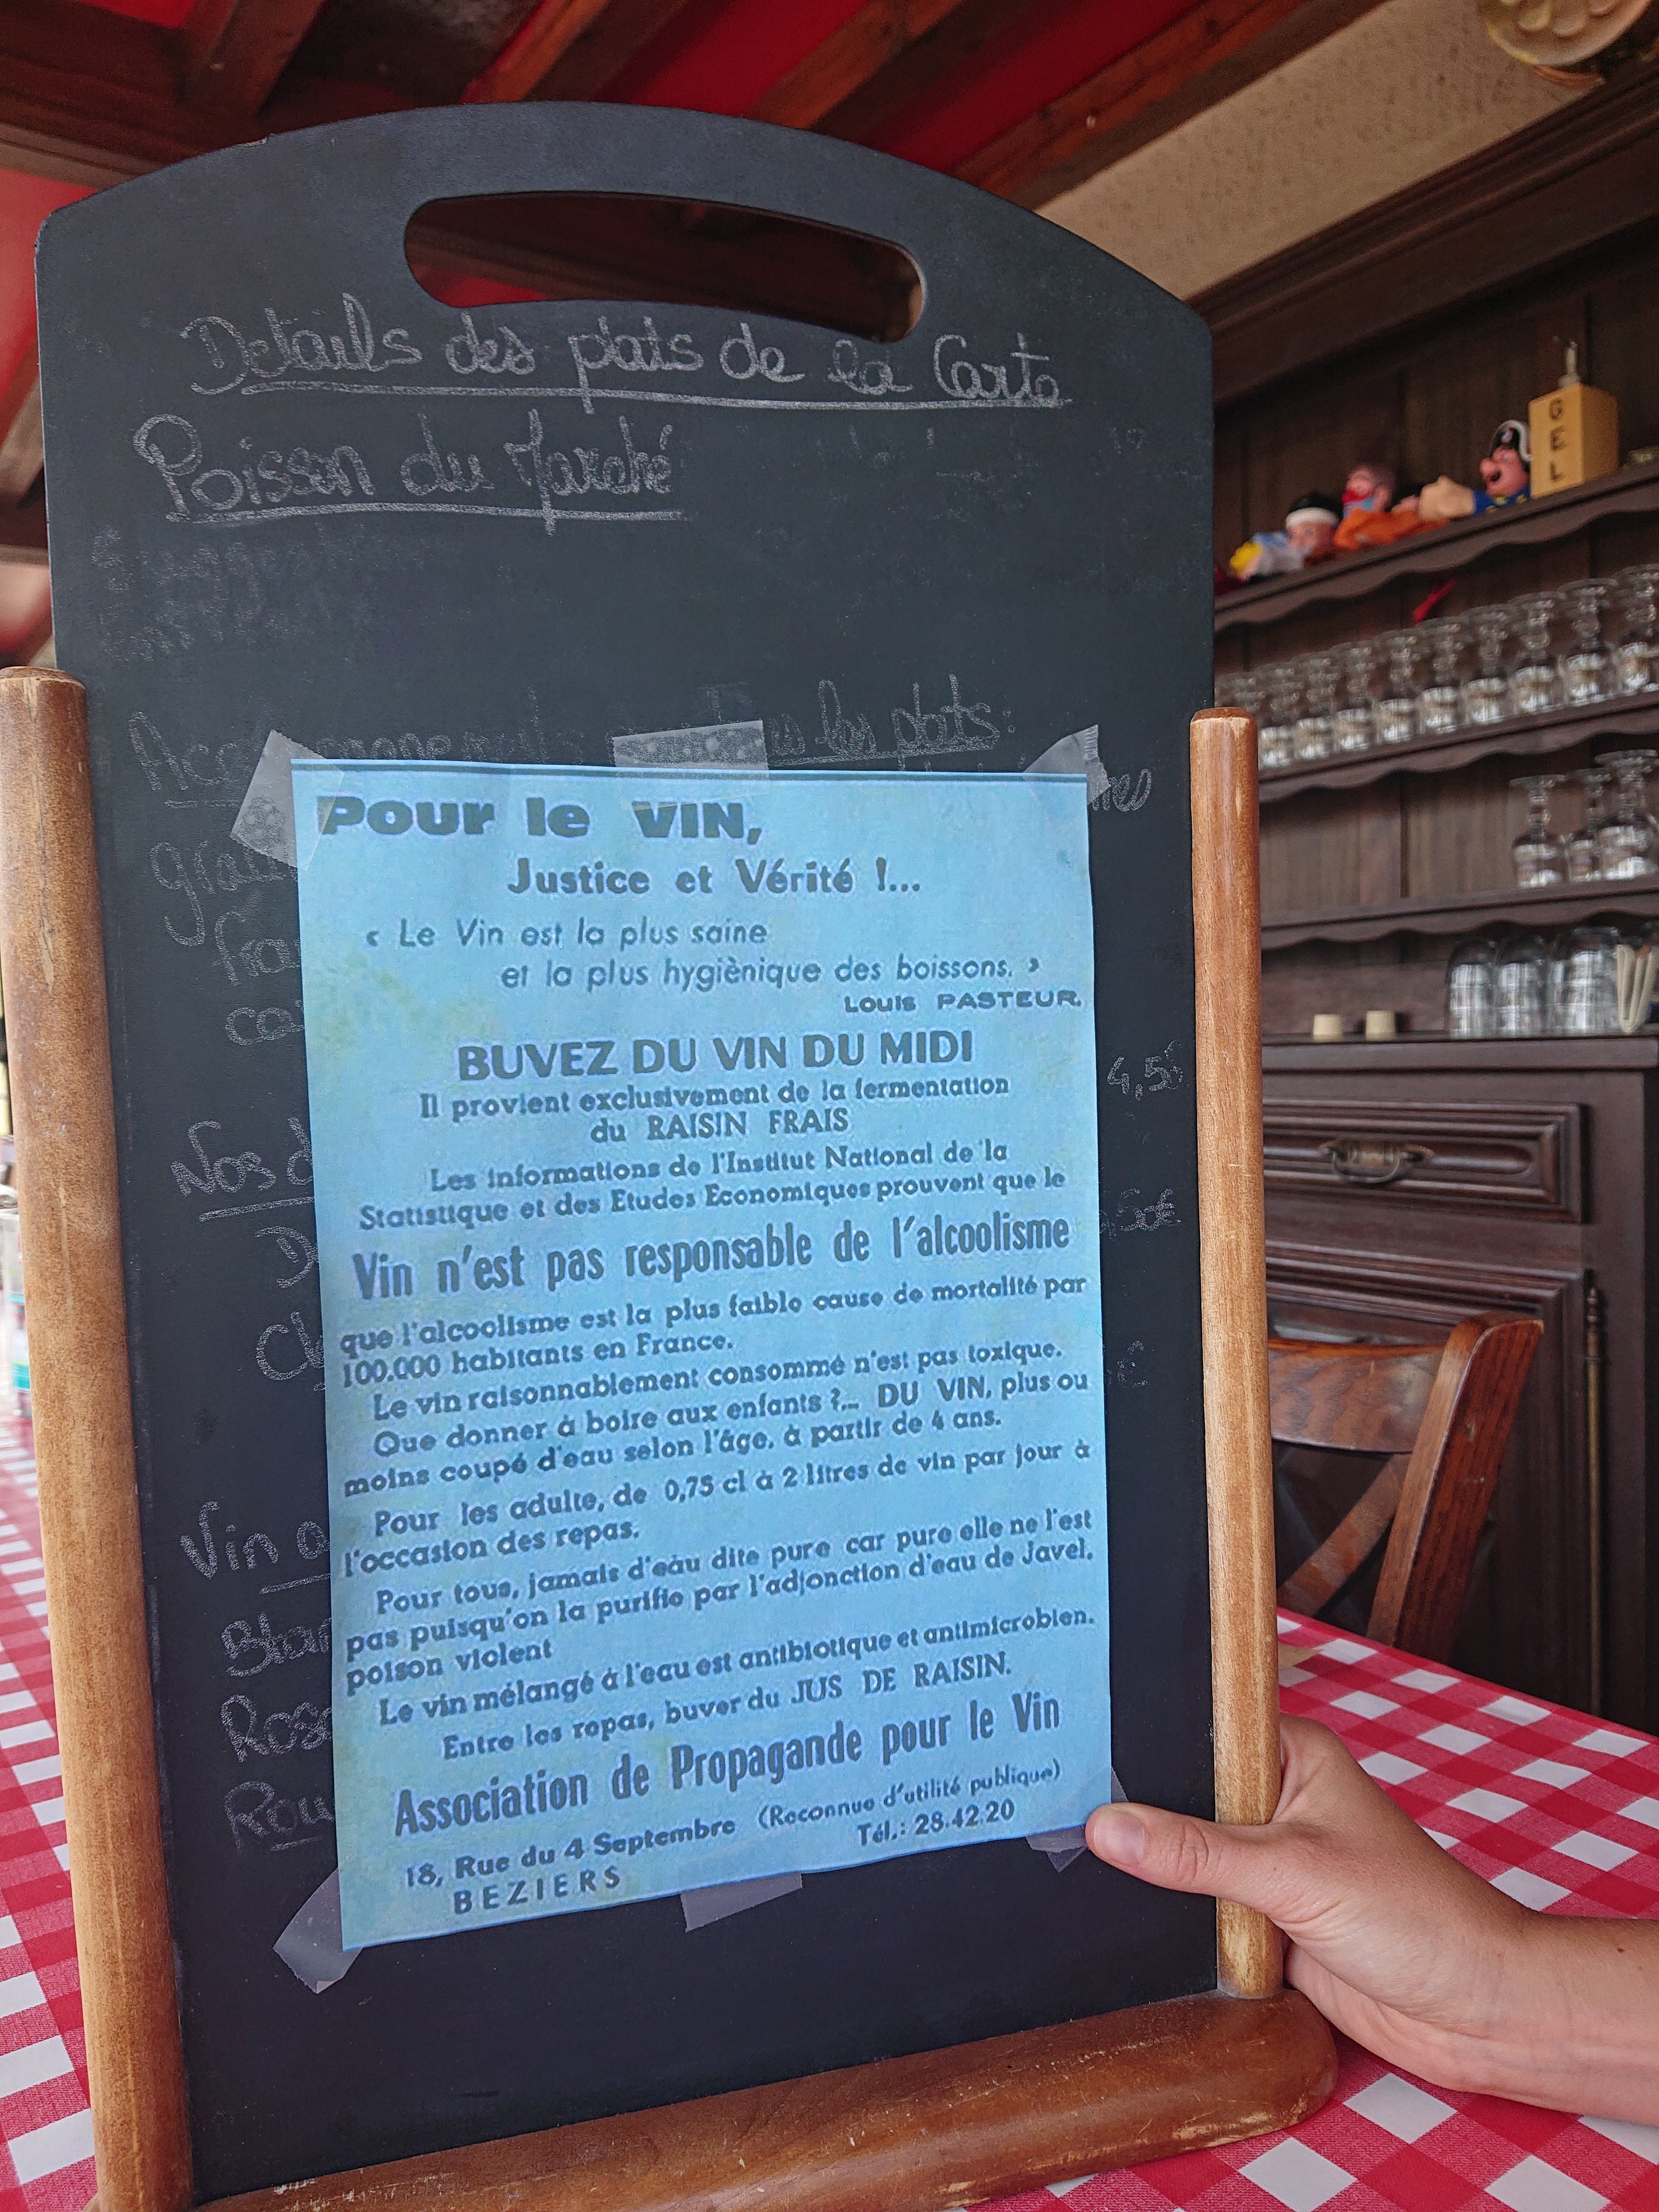 Details des plats de la Carte
Poisson du Marché
les plats:
GEL
Pour le VIN,
Justice et Vérité !...
« Le Vin est la plus saine
et la plus hygiènique des boissons. »
Louis PASTEUR.
BUVEZ DU VIN DU MIDI
Il provient exclusivement de la fermentation
du RAISIN FRAIS
Les informations de l'Institut National de la
Statistique et des Etudes Economiques prouvent que le
Vin n'est pas responsable de l'alcoolisme
que l'alcoolisme est la plus faible cause de mortalité par
100.000 habitants en France.
Le vin raisonnablement consommé n'est pas toxique.
Que donner à boire aux enfants ?... DU VIN, plus ou
moins coupé d'eau selon l'âge, à partir de 4 ans.
Pour les adulte, de 0,75 cl à 2 litres de vin par jour à
l'occasion des repas.
Pour tous, jamais d'eau dite pure car pure elle ne l'est
pas puisqu'on la purifie par l'adjonction d'eau de Javel,
poison violent
Le vin mélangé à l'eau est antibiotique et antimicrobien.
Entre les repas, buver du JUS DE RAISIN.
Association de Propagande pour le Vin
18, Rue du 4 Septembre (Reconnue d'utilité publique)
BEZIERS Tél.: 28.42.20
4,5
Nos d
,5€
Vin
Ros
Rou